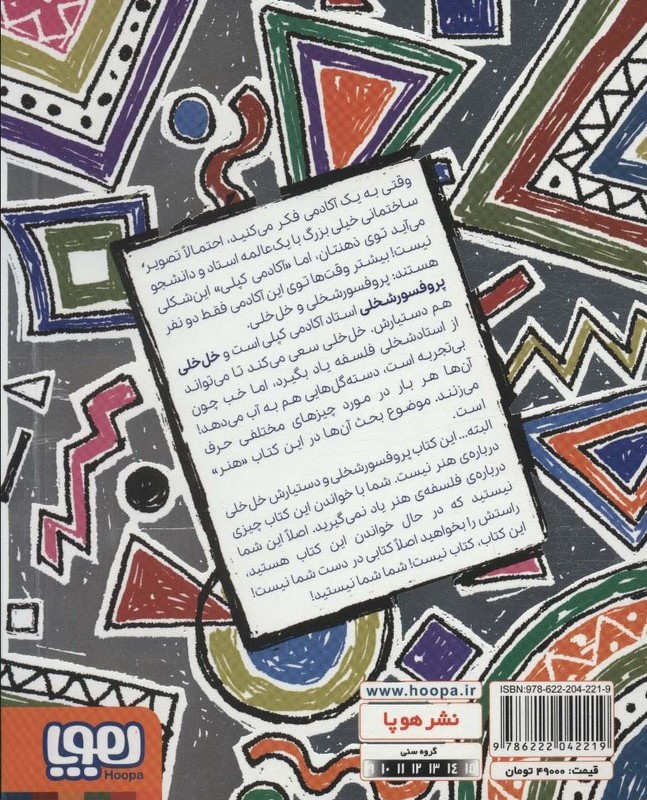 وقتی به یک آکادمی فکر می‌کنید، احتمالاً تصویرِ
ساختمانی خیلی بزرگ با یک عالمه استاد و دانشجو
می‌آید توی ذهنتان، اما «آکادمی کپلی» این‌شکلی
نیست! بیشتر وقت‌ها توی این آکادمی فقط دو نفر
هستند: پروفسورشخلی و خل‌خلی.
پروفسورشخلی استاد آکادمی کپلی است و خل‌خلی
هم دستیارش. خل‌خلی سعی می‌کند تا می‌تواند
از استادشخلی فلسفه یاد بگیرد، اما خب چون
بی‌تجربه است، دسته‌گل‌هایی هم به آب می‌دهد!
آن‌ها هر بار در مورد چیزهای مختلفی حرف
می‌زنند. موضوع بحث آن‌ها در این کتاب «هنر»
است.
البته... این کتاب پروفسورشخلی و دستیارش خل‌خلی
درباره‌ی هنر نیست. شما با خواندن این کتاب چیزی
درباره‌ی فلسفه‌ی هنر یاد نمی‌گیرید. اصلاً این شما
نیستید که در حال خواندن این کتاب هستید.
راستش را بخواهید اصلاً کتابی در دست شما نیست!
این کتاب، کتاب نیست! شما شما نیستید!
هوپا
Hoopa
www.hoopa.ir
نشر هوپا
گروه سنی
۹ ۱۰ ۱۱ ۱۲ ۱۳ ۱۴ ۱۵
ISBN:978-622-204-221-9
9 786222 042219
قیمت: ۴۹۰۰۰ تومان